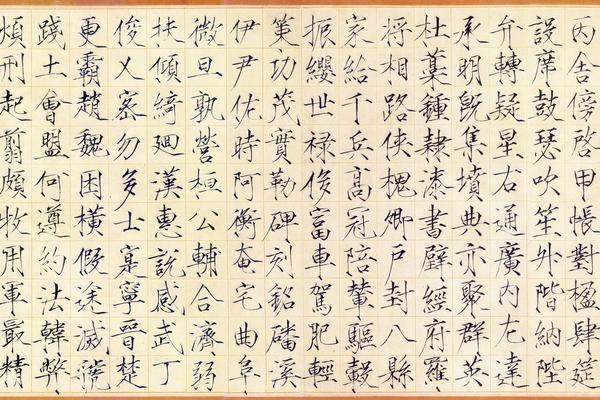 丙舍傍啓甲帳對楹肆筵
設席鼓瑟吹笙升階納陛
弁轉疑星右通廣內左達
承明既集墳典亦聚群英
杜藁鍾隸漆書壁經府羅
將相路俠槐卿戶封八縣
家給千兵高冠陪輦驅轂
振纓世祿侈富車駕肥輕
策功茂實勒碑刻銘磻溪
伊尹佐時阿衡奄宅曲阜
微旦孰營桓公輔合濟弱
扶傾綺迴漢惠說感武丁
俊乂密勿多士寔寧晉楚
更霸趙魏困橫假途滅虢
踐土會盟何遵約法韓弊
煩刑起翦頗牧用軍最精